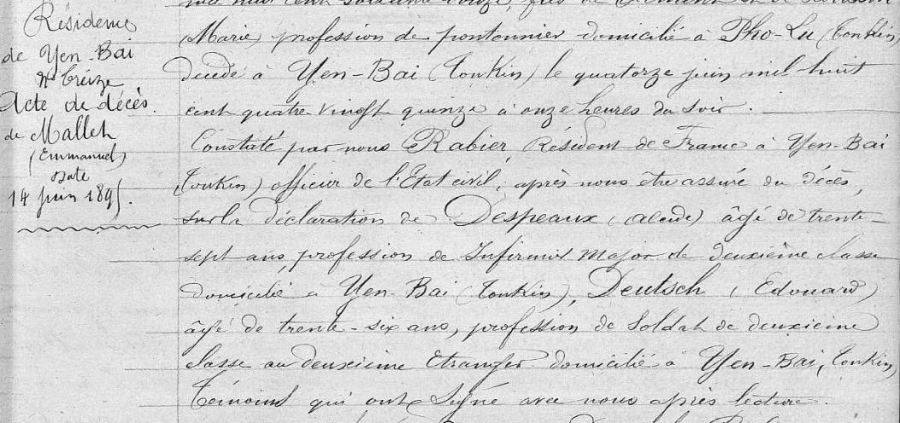 Résidence
de Yen-Bai
N° treize
Acte de décès
de Malleh
(Emmanuel)
Date
14 juin 1895.
mil huit cent soixante onze, fils de Clément et de
Marie, profession de pontonnier domicilié à Pho-Lu (Tonkin)
décédé à Yen-Bai (Tonkin) le quatorze juin mil huit
cent quatre vingt quinze à onze heures du soir.
Constaté par nous Rabier, Résident de France à Yen-Bai
(Tonkin) officier de l'Etat civil, après nous être assuré du décès,
sur la déclaration de Despeaux, (Alcide) âgé de trente
sept ans, profession de Infirmier Major de deuxième classe
domicilié à Yen-Bai (Tonkin), Deutsch, (Edouard)
âgé de trente-six ans, profession de Soldat de deuxième
classe au deuxième Etranger domicilié à Yen-Bai, Tonkin,
Témoins qui ont signé avec nous après lecture.